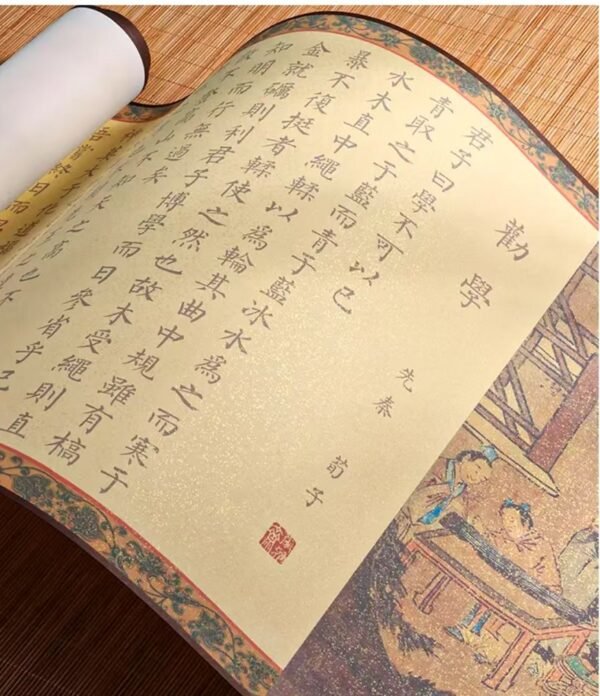 勸學
先秦 荀子
君子曰學不可以已
青取之于藍而青于藍冰水為之而寒于
水木直中繩輮以為輪其曲中規雖有槁
暴不復挺者輮使之然也故木受繩則直
金就礪則利君子博學而日參省乎己
知明而行無過矣
故不山不知天
吾嘗終日而